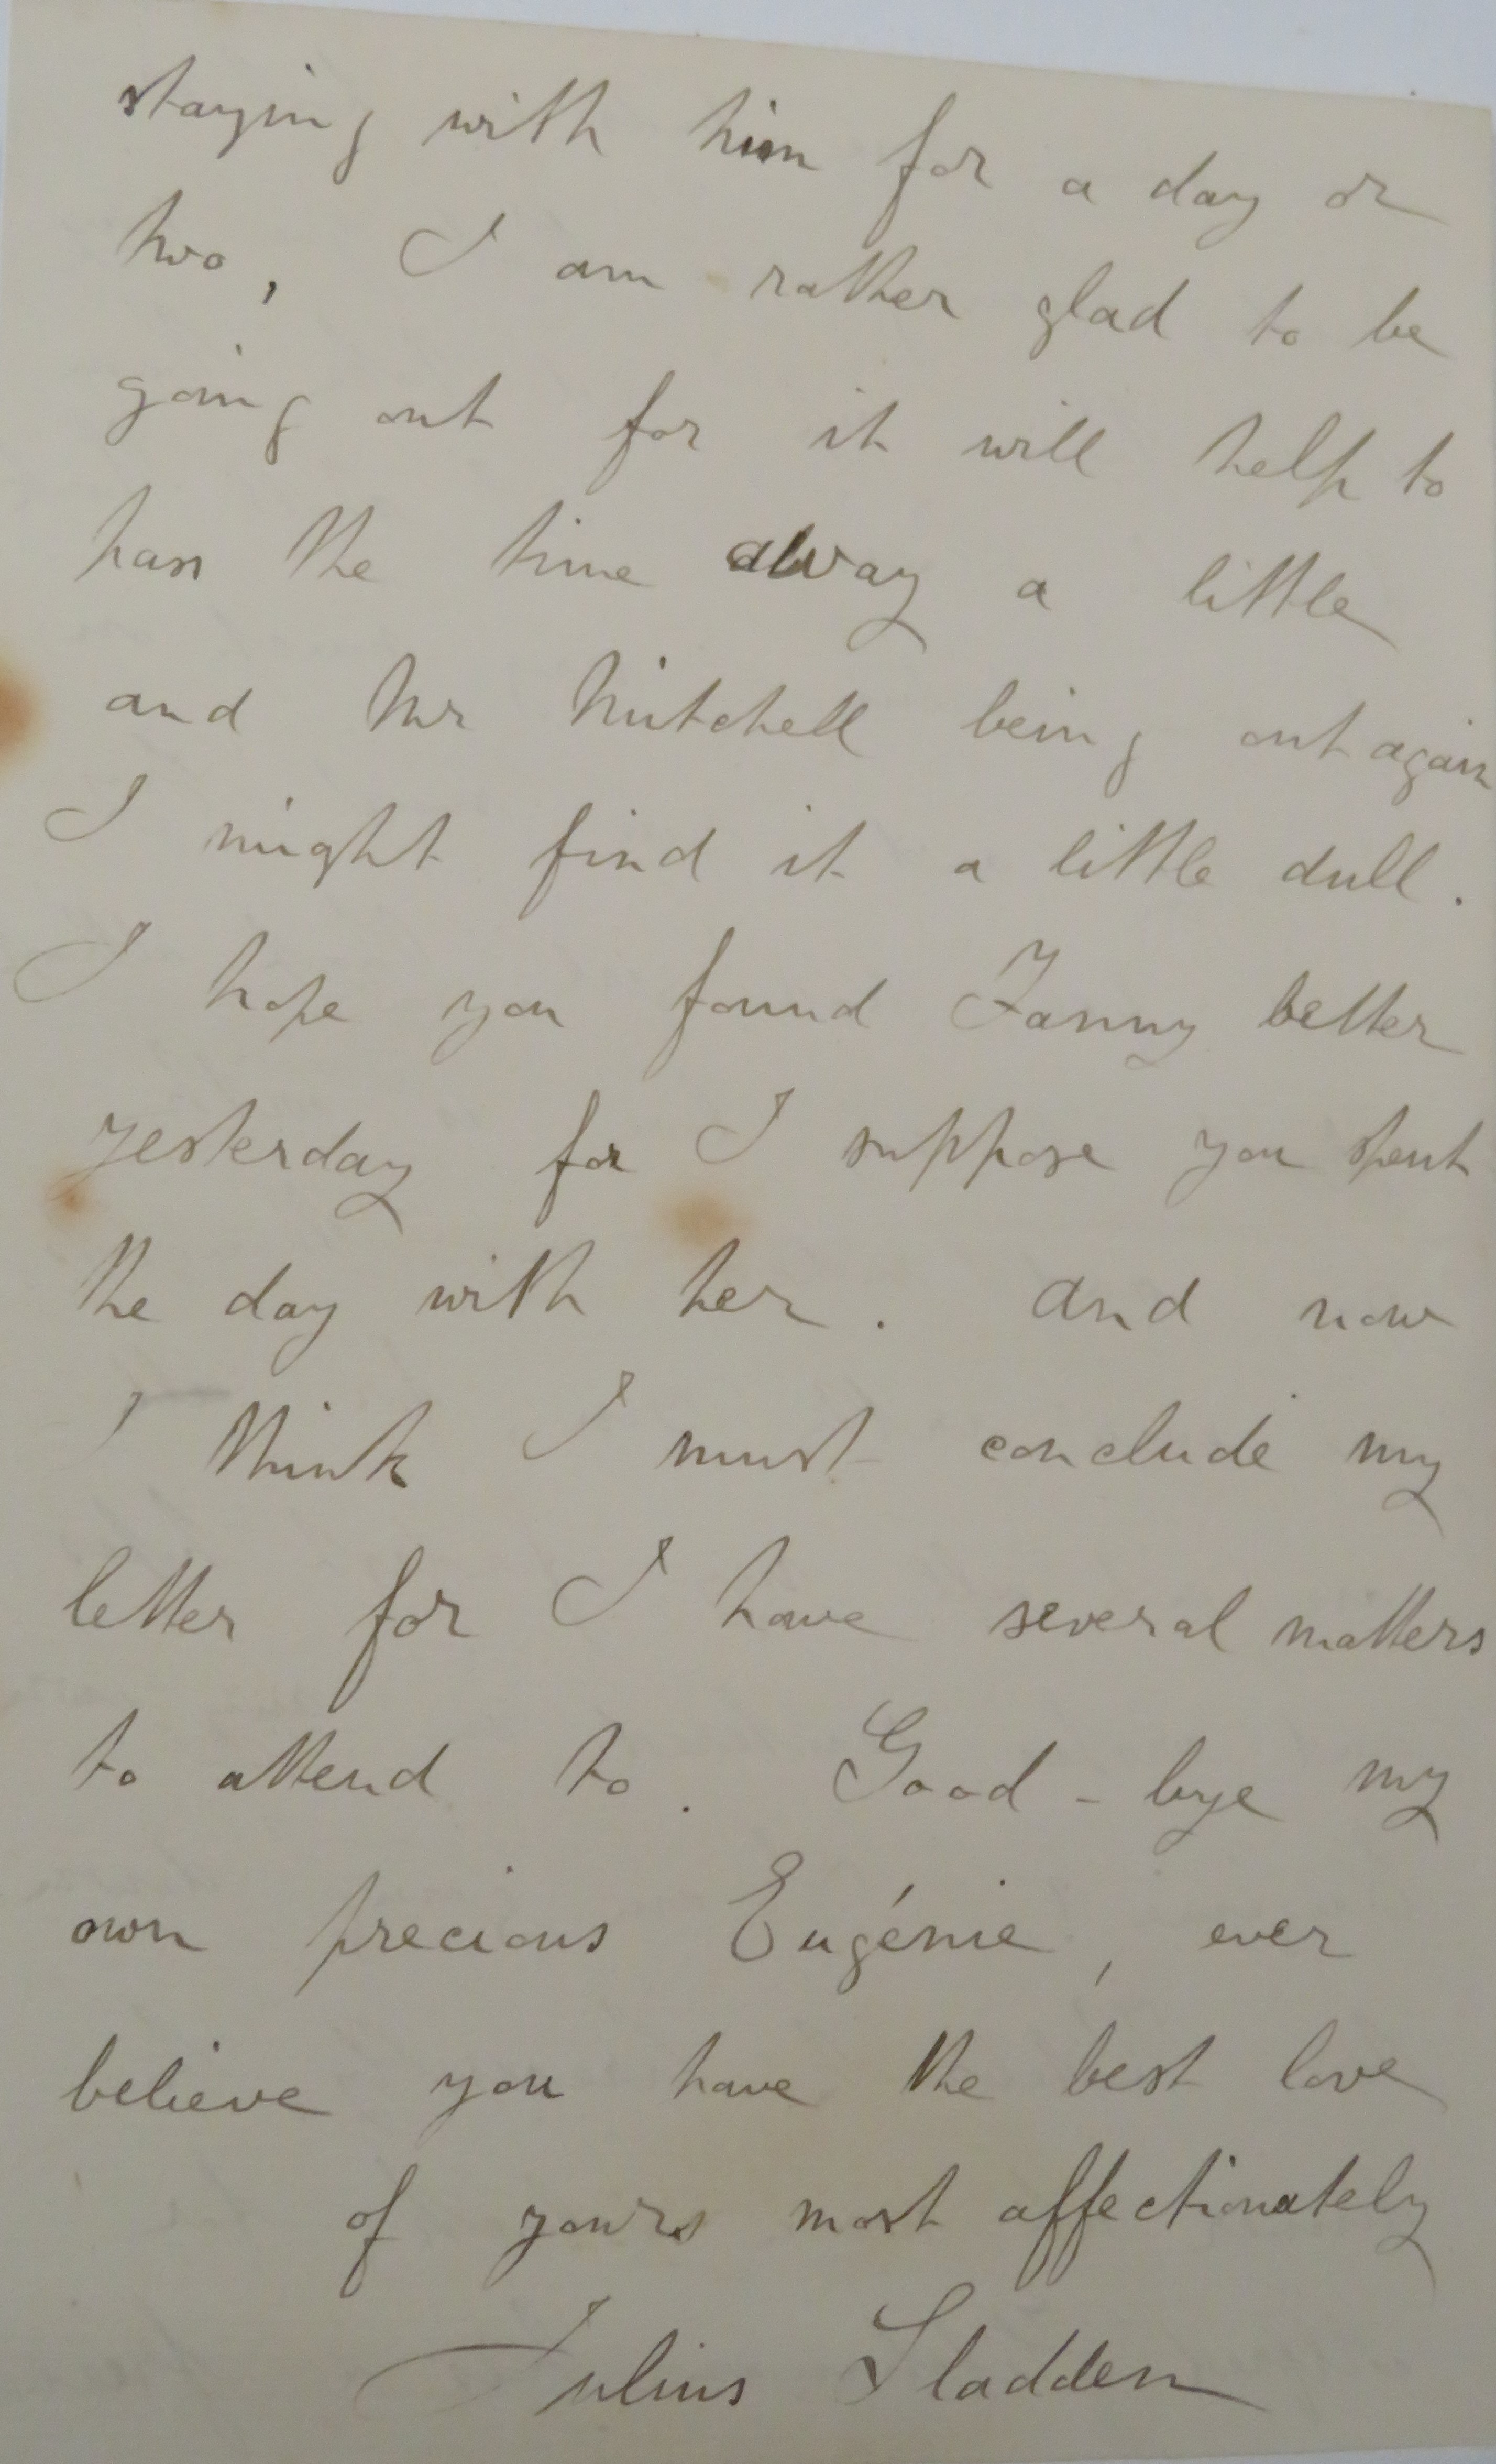 staying with him for a day or
two, I am rather glad to be
going out for it will help to
pass the time away a little
and Mr Mitchell being out again
I might find it a little dull.
I hope you found Fanny better
yesterday for I suppose you spent
the day with her. And now
I think I must conclude my
letter for I have several matters
to attend to. Good-bye my
own precious Eugénie, ever
believe you have the best love
of yours most affectionately
Julius Sladden